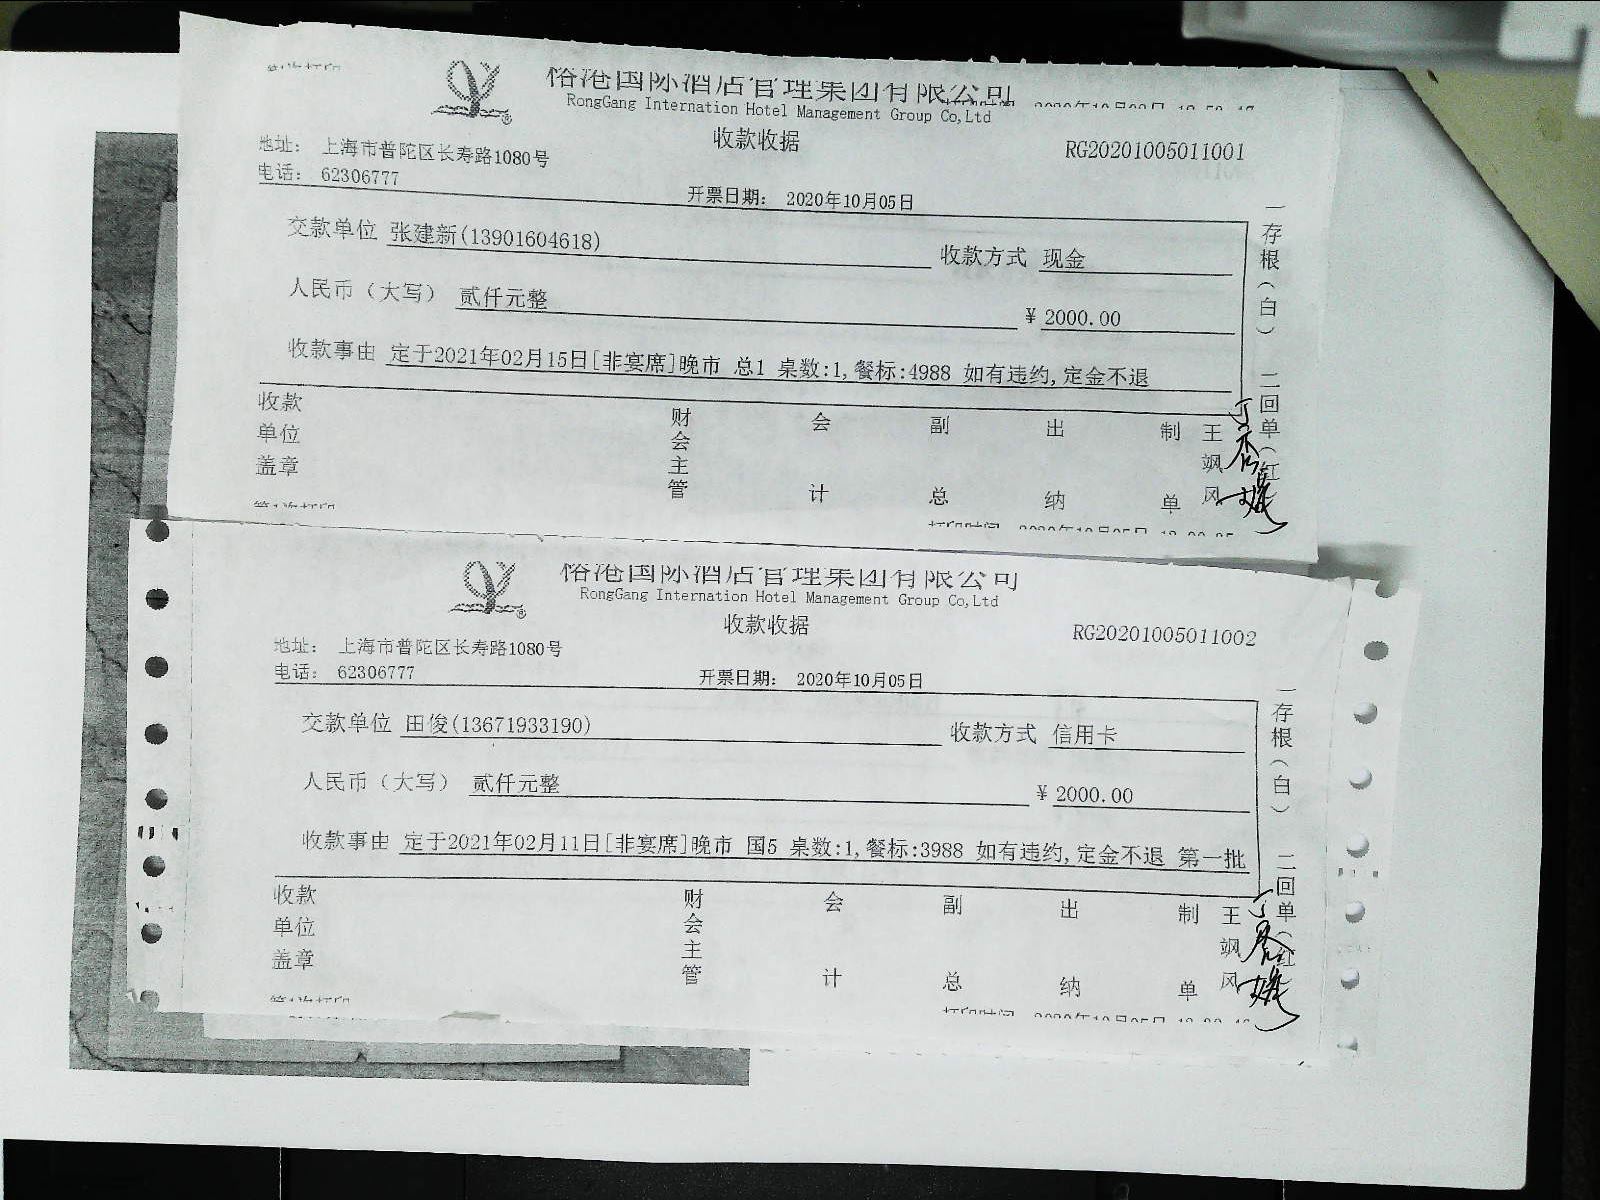 裕港国际酒店管理集团有限公司
RongGang Internation Hotel Management Group Co,Ltd
收款收据
RG20201005011001
地址： 上海市普陀区长寿路1080号
电话： 62306777
开票日期： 2020年10月05日
交款单位 张建新(13901604618) 收款方式 现金
人民币（大写） 贰仟元整 ¥ 2000.00
收款事由 定于2021年02月15日[非宴席]晚市 总1 桌数:1,餐标:4988 如有违约,定金不退
收款单位盖章 财会主管 会计 副总 出纳 制单 王飒风
一存根（白） 二回单（红
第1次打印
打印时间 2020年10月05日
裕港国际酒店管理集团有限公司
RongGang Internation Hotel Management Group Co,Ltd
收款收据
RG20201005011002
地址： 上海市普陀区长寿路1080号
电话： 62306777
开票日期： 2020年10月05日
交款单位 田俊(13671933190) 收款方式 信用卡
人民币（大写） 贰仟元整 ¥ 2000.00
收款事由 定于2021年02月11日[非宴席]晚市 国5 桌数:1,餐标:3988 如有违约,定金不退 第一批
收款单位盖章 财会主管 会计 副总 出纳 制单 王飒风
一存根（白） 二回单（红
第1次打印
打印时间 2020年10月05日